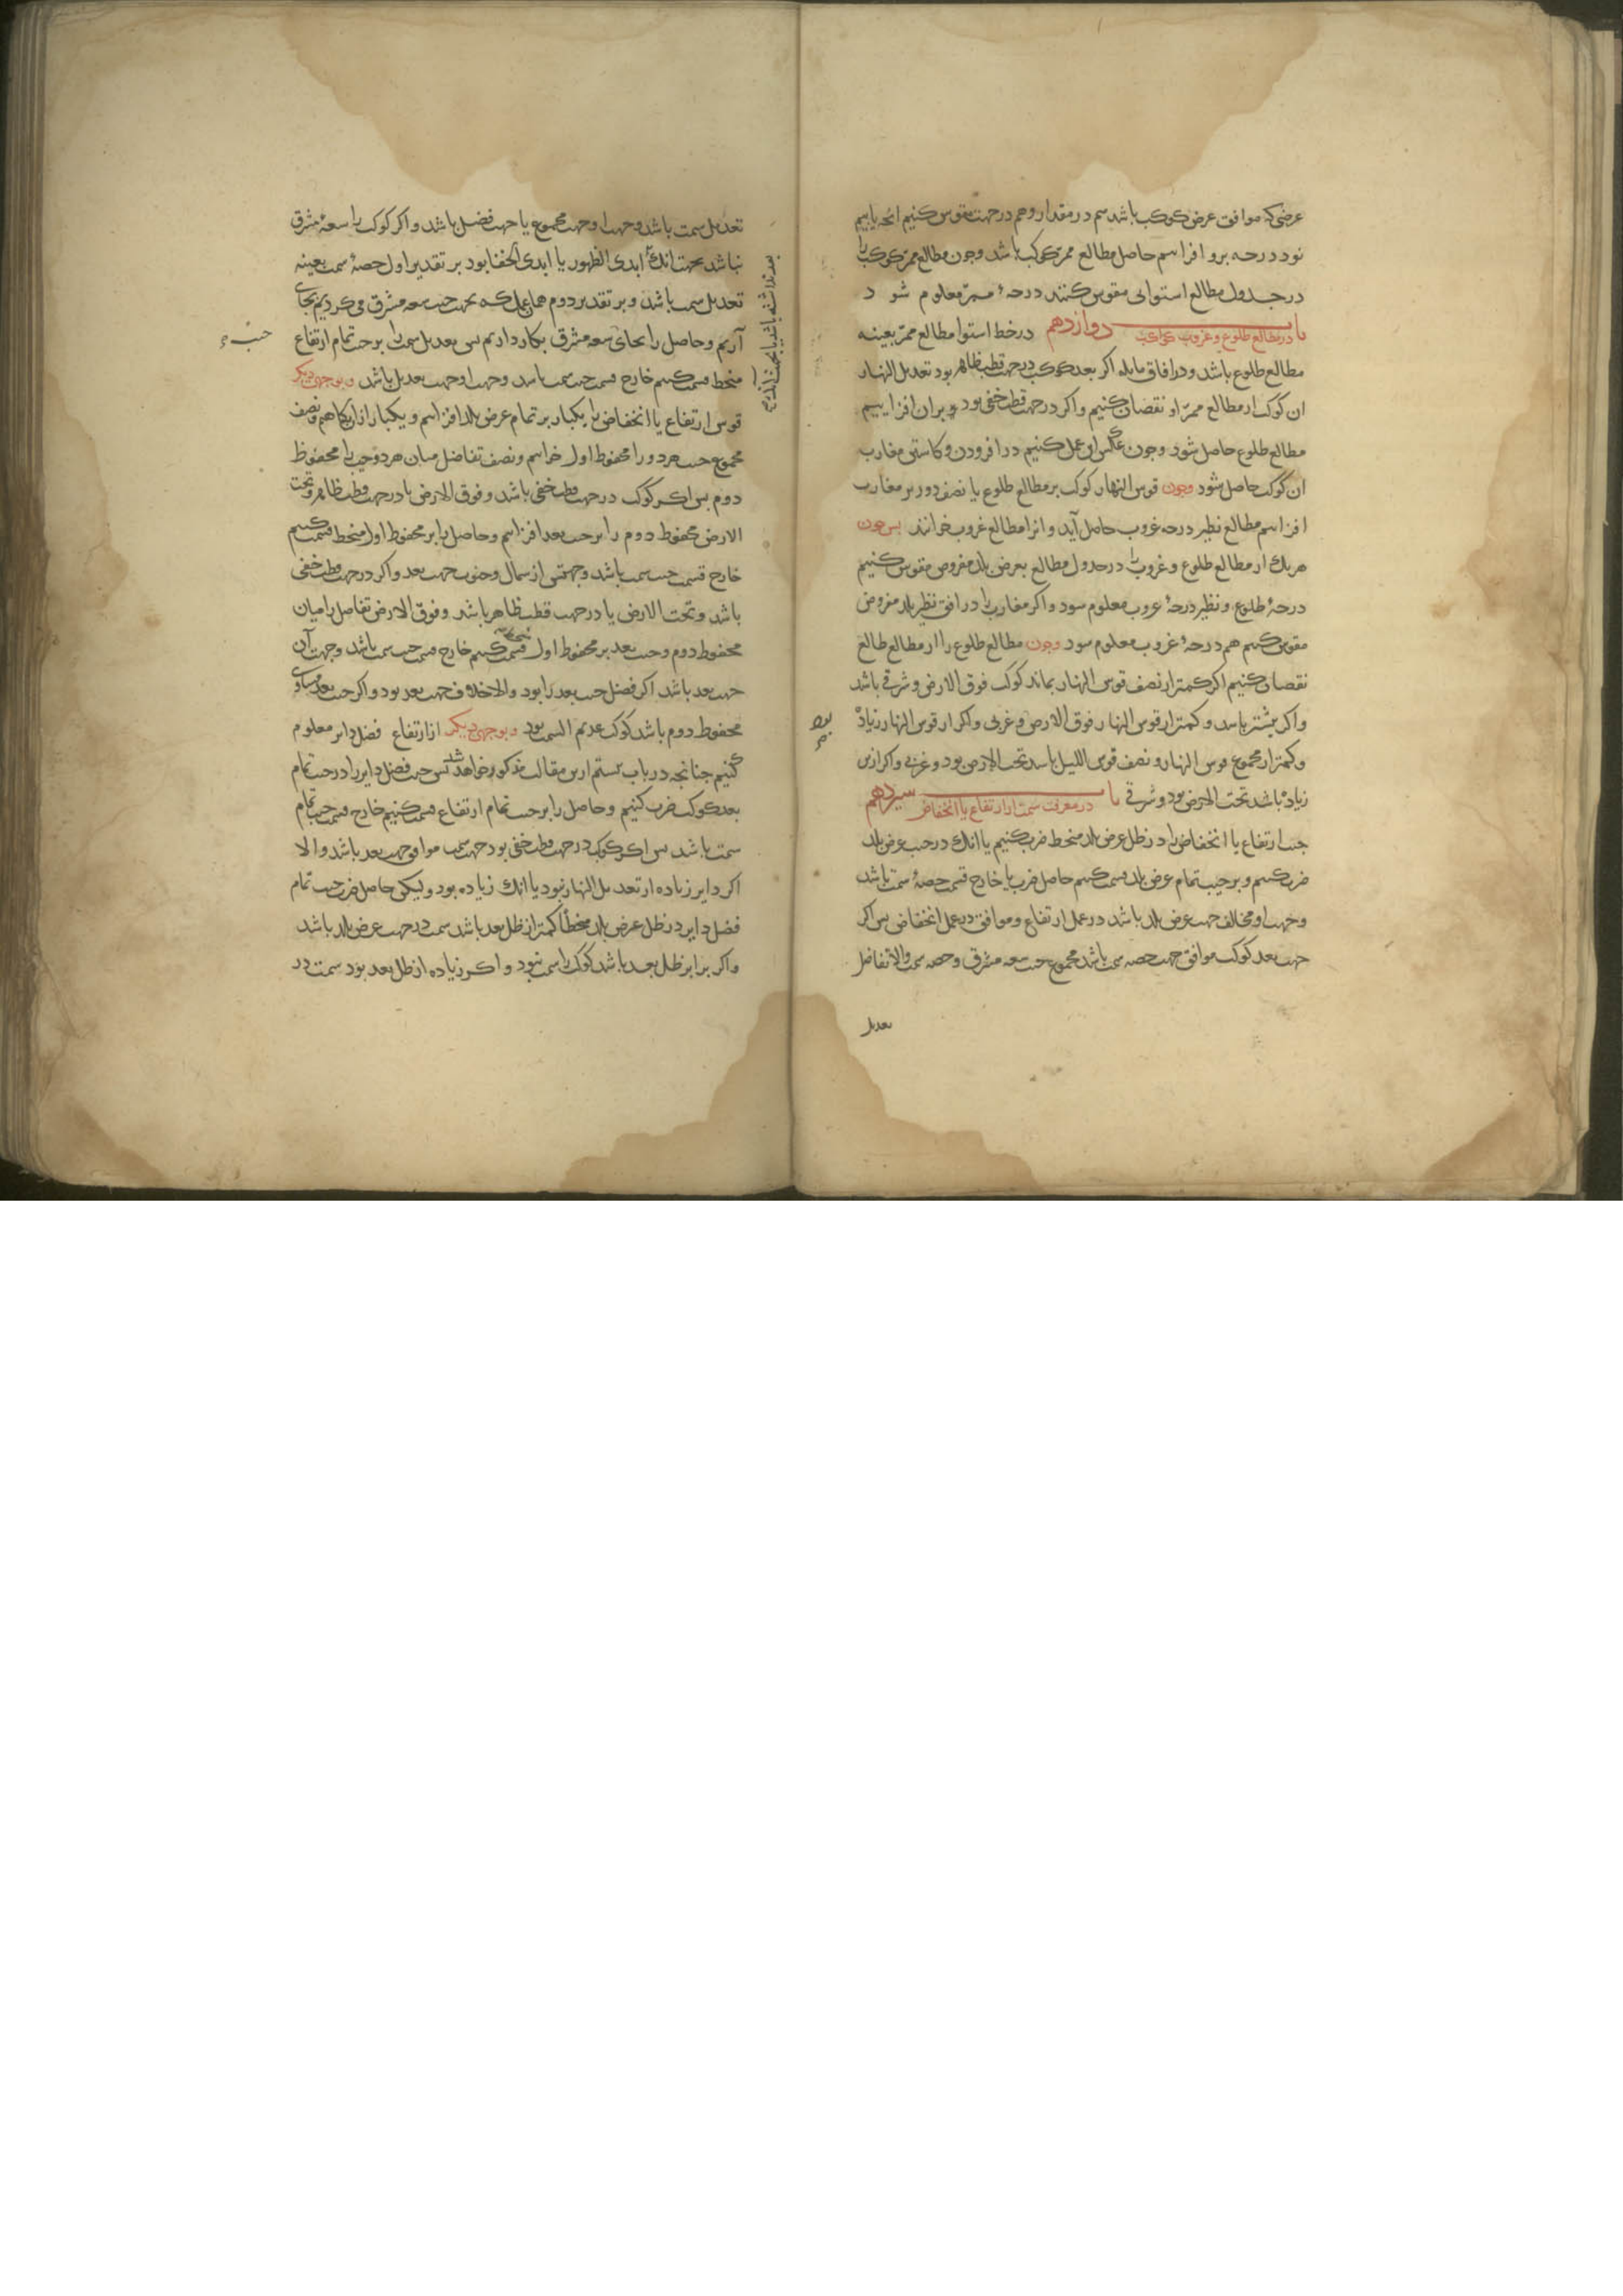 عرضی که موافق عرض کوکب باشد هم در مقدار و هم در جهت مقوس کنیم انچه یابیم
نود درجه برو افزاییم حاصل مطالع ممر کوکب باشد وچون مطالع ممر کوکب را
در جدول مطالع استوایی مقوس کنند درجهٔ ممر معلوم شود
باب دوازدهم در مطالع طلوع و غروب کواکب درخط استوا مطالع ممر بعینه
مطالع طلوع باشد و در افاق مایله اکر بعد کوکب در جهت قطب ظاهر بود تعدیل النهار
ان کوکب از مطالع ممر او نقصان کنیم و اکر در جهت قطب خفی بود بران افزاییم
مطالع طلوع حاصل شود وچون عکس این عمل کنیم در افزودن و کاستن مغارب
ان کوکب حاصل شود وچون قوس النهار کوکب بر مطالع طلوع یا نصف دور بر مغارب
افزاییم مطالع نظیر درجه غروب حاصل آید و انرا مطالع غروب خوانند پس چون
هریک از مطالع طلوع و غروب را در جدول مطالع بعرض بلد مفروض مقوس کنیم
درجهٔ طلوع و نظیر درجهٔ غروب معلوم شود و اکر مغارب را در افق نظیر بلد مفروض
مقوس کنیم هم درجهٔ غروب معلوم شود وچون مطالع طلوع را از مطالع طالع
نقصان کنیم اکر کمتر از نصف قوس النهار بماند کوکب فوق الارض و شرقی باشد
واکر بیشتر باشد و کمتر از قوس النهار فوق الارض و غربی واکر از قوس النهار زیاده
وکمتر از مجموع قوس النهار و نصف قوس اللیل باشد تحت الارض بود و غربی واکر ازین
زیاده باشد تحت الارض بود و شرقی باب سیزدهم در معرفت سمت از ارتفاع یا انخفاض
جیب ارتفاع یا انخفاض را در ظل عرض بلد منحط ضرب کنیم یا انک در جیب عرض بلد
ضرب کنیم و بر جیب تمام عرض بلد قسمت کنیم حاصل ضرب یا خارج قسمت حصهٔ سمت باشد
وجهت او مخالف جهت عرض بلد باشد در عمل ارتفاع و موافق در عمل انخفاض پس اکر
جهت بعد کوکب موافق جهت حصه سمت باشد مجموع جیب سعه مشرق و حصه سمت والا تفاضل
تعدیل
تعدیل سمت باشد وجهت او جهت مجموع یا جهت فضل باشد و اکر کوکب را سعهٔ مشرق
نباشد بجهت انک ابدی الظهور یا ابدی الخفا بود بر تقدیر اول حصهٔ سمت بعینه
تعدیل سمت باشد و بر تقدیر دوم همان عمل که بجهت جیب سعه مشرق می کردیم بجای
آریم و حاصل را بجای سعه مشرق بکار داریم پس تعدیل سمت را بر جیب تمام ارتفاع
منحط قسمت کنیم خارج قسمت جیب سمت باشد وجهت او جهت تعدیل باشد وبوجهی دیکر
قوس ارتفاع یا انخفاض را یکبار بر تمام عرض بلد افزاییم و یکبار ازان بکاهیم و نصف
مجموع جیب هر دو را محفوظ اول خوانیم و نصف تفاضل میان هر دو جیب را محفوظ
دوم پس اکر کوکب در جهت قطب خفی باشد و فوق الارض یا در جهت قطب ظاهر و تحت
الارض محفوظ دوم را بر جیب بعد افزاییم و حاصل را بر محفوظ اول منحط قسمت کنیم
خارج قسمت جیب سمت باشد و جهتش از شمال و جنوب جهت بعد و اکر در جهت قطب خفی
باشد و تحت الارض یا در جهت قطب ظاهر باشد و فوق الارض تفاضل را میان
محفوظ دوم و جیب بعد بر محفوظ اول قسمت کنیم خارج قسمت جیب سمت باشد وجهت آن
جهت بعد باشد اکر فضل جیب بعد را بود والا خلاف جهت بعد بود و اکر جیب بعد مساوی
محفوظ دوم باشد کوکب عدیم السمت بود وبوجهی دیکر از ارتفاع فضل دایر معلوم
کنیم چنانچه در باب بیستم ازین مقالت مذکور خواهد شد پس جیب فضل دایر را در جیب تمام
بعد کوکب ضرب کنیم و حاصل را بر جیب تمام ارتفاع قسمت کنیم خارج قسمت جیب تمام
سمت باشد پس اکر کوکب در جهت قطب خفی بود جهت سمت موافق جهت بعد باشد والا
اکر دایر زیاده از تعدیل النهار نبود یا انک زیاده بود ولیکن حاصل ضرب جیب تمام
فضل دایر در ظل عرض بلد منحطا کمتر از ظل بعد باشد سمت در جهت عرض بلد باشد
واکر برابر ظل بعد باشد کوکب را سمت نبود و اکر زیاده از ظل بعد بود سمت در